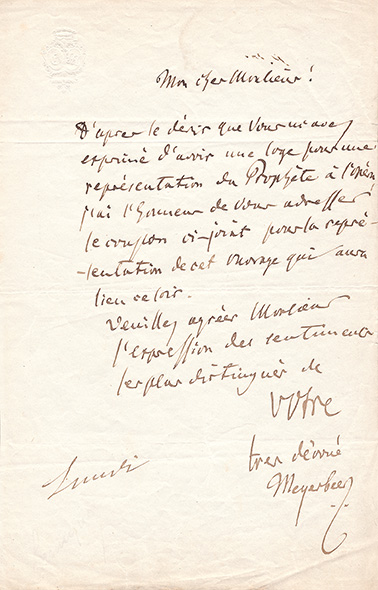 Mon cher Monsieur!
D'après le désir que vous m'avez
exprimé d'avoir une loge pour une
représentation du Prophète à l'opéra
j'ai l'honneur de vous adresser
le coupon ci-joint pour la repré-
-sentation de cet ouvrage qui aura
lieu ce soir.
Veuillez agréer Monsieur
l'expression des sentiments
les plus distingués de
votre
très dévoué
Meyerbeer
Lundi